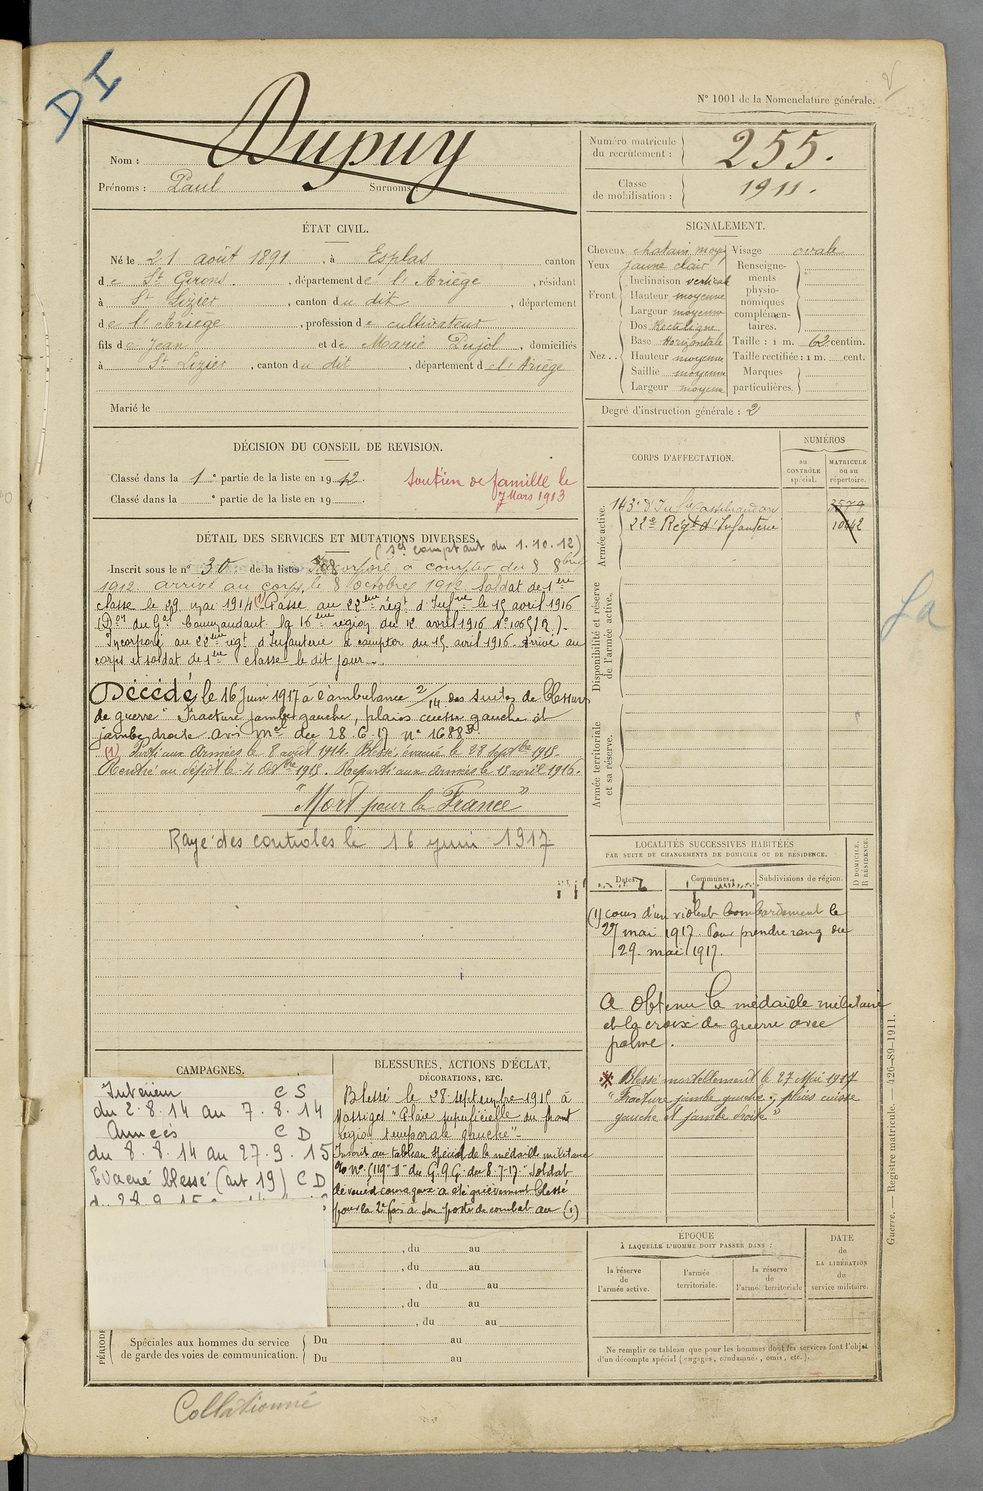 DI
N° 1001 de la Nomenclature générale.
Nom : Dupuy
Prénoms : Paul Surnoms :
Numéro matricule du recrutement : 255.
Classe de mobilisation : 1911.
ÉTAT CIVIL.
Né le 21 août 1891, à Esplas canton
de St Girons, département de l'Ariège, résidant
à St Lizier, canton du dit, département
de l'Ariège, profession de cultivateur
fils de Jean et de Marie Pujol, domiciliés
à St Lizier, canton du dit, département de l'Ariège
Marié le
SIGNALEMENT.
Cheveux chatain moyen
Yeux jaune clair
Front. Inclinaison vertical
Hauteur moyenne
Largeur moyenne
Nez.. Dos Rectiligne
Base Horizontale
Hauteur moyenne
Saillie moyenne
Largeur moyenne
Visage ovale
Renseignements physionomiques complémentaires.
Taille : 1 m. 62 centim.
Taille rectifiée : 1 m. cent.
Marques particulières.
Degré d'instruction générale : 2
DÉCISION DU CONSEIL DE REVISION.
Classé dans la 1e partie de la liste en 1912
Classé dans la e partie de la liste en 19 .
Soutien de famille le
7 Mars 1913
CORPS D'AFFECTATION.
NUMÉROS
au CONTRÔLE spécial.
MATRICULE ou au répertoire.
Armée active.
143e d'Infie Castelnaudary
22e Regt d'Infanterie 10642
Disponibilité et réserve de l'armée active.
Armée territoriale et sa réserve.
La
DÉTAIL DES SERVICES ET MUTATIONS DIVERSES.
(Sce comptant du 1.10.12)
Inscrit sous le n° 30 de la liste Incorporé à compter du 8 8bre
1912 arrivé au corps le 8 octobre 1912 Soldat de 1ere
classe le 29 mai 1914 (1) Passé au 22eme régt d'Infrie le 15 avril 1916
(Don du Gal Commandant la 16eme région du 12 avril 1916 N° 10651 R.).
Incorporé au 22eme régt d'Infanterie à compter du 15 avril 1916. Arrivé au
corps et soldat de 1ere classe le dit jour.
Décédé le 16 juin 1917 à l'ambulance 2/14 des suites de blessures
de guerre "Fracture jambe gauche, plaies cuisse gauche et
jambe droite avis Mel du 28.6.17 n° 1688 B.
(1) Parti aux Armées le 8 août 1914. Blessé évacué le 28 septbre 1915.
Rentré au dépôt le 4 octbre 1915. Reparti aux armées le 13 avril 1916.
"Mort pour la France"
Rayé des contrôles le 16 juin 1917
LOCALITÉS SUCCESSIVES HABITÉES
PAR SUITE DE CHANGEMENTS DE DOMICILE OU DE RÉSIDENCE.
Dates. Communes. Subdivisions de région. D DOMICILE. R RÉSIDENCE.
(1) cours d'un violent bombardement le
27 mai 1917. Pour prendre rang du
29. mai 1917.
A obtenu la médaille militaire
et la croix de guerre avec
palme.
Blessé mortellement le 27 Mai 1917
"Fracture jambe gauche, plaies cuisse
gauche et jambe droite"
CAMPAGNES.
Intérieur C S
du 2.8.14 au 7.8.14
Armées C D
du 8.8.14 au 27.9.15
Evacué blessé (art 19) C D
BLESSURES, ACTIONS D'ÉCLAT,
DÉCORATIONS, ETC.
Blessé le 28 septembre 1915 à
Massiges "Plaie superficielle du front
région temporale gauche"-
Inscrit au tableau spécial de la médaille militaire
"D" du G.Q.G. du 8-7-17 "Soldat
dévoué et courageux a été grièvement blessé
pour la 2e fois à son poste de combat au (1)
, du au
, du au
, du au
, du au
, du au
PÉRIODES
Spéciales aux hommes du service de garde des voies de communication.
Du au
Du au
ÉPOQUE
À LAQUELLE L'HOMME DOIT PASSER DANS :
la réserve de l'armée active.
l'armée territoriale.
la réserve de l'armée territoriale
DATE de LA LIBÉRATION du service militaire.
Ne remplir ce tableau que pour les hommes dont les services font l'objet
d'un décompte spécial (engagés, condamnés, omis, etc.).
Guerre. — Registre matricule. — 426-89-1911.
Collationné